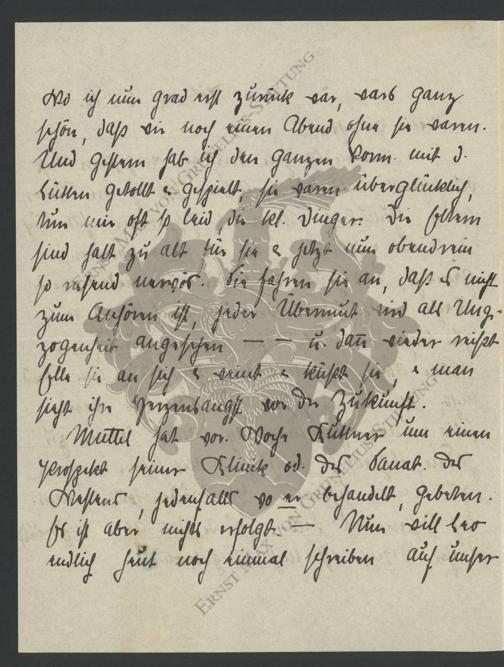 Wo ich nun grad erst zurück war, wars ganz
schön, daß wir noch einen Abend ohne sie waren.
Und gestern hab ich den ganzen Vorm. mit d.
getollt & gespielt, sie waren überglücklich,
tun mir oft so leid die kl. Dinger. Die Eltern
sind halt zu alt für sie & jetzt nun obendrein
so rasend nervös. Sie fahren sie an, daß es nicht
zum Anhören ist, jeder Übermut wird als Ung-
zogenheit angesehen — — u. dann wieder reißt
sie an sich & weint & küßt sie, & man
sieht ihre Herzensangst vor der Zukunft.
Muttel hat vor. Woche Kuttner um einen
Prospekt seiner Klinik od. des Sanat. des
Westens, jedenfalls wo er behandelt, gebeten.
Es ist aber nichts erfolgt — Nun will Leo
endlich heut noch einmal schreiben auf unser
ERNST MAX VON GRUNELIUS-STIFTUNG
ERNST MAX VON GRUNELIUS-STIFTUNG